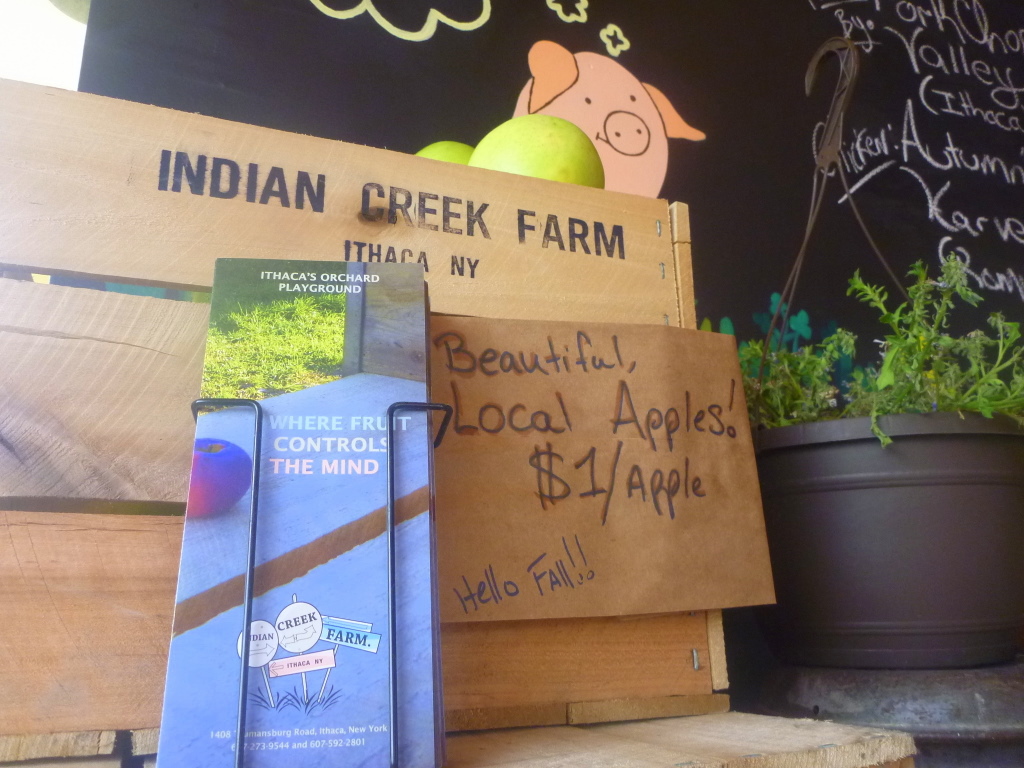 INDIAN CREEK FARM
ITHACA NY
ITHACA'S ORCHARD
PLAYGROUND
WHERE FRUIT
CONTROLS
THE MIND
CREEK
FARM.
ITHACA NY
Road, Ithaca, New York
273-9544 and 607-592-2801
Beautiful,
Local Apples!
$1/Apple
Hello Fall!!
By:
Valley
(Ithaca
Autumn